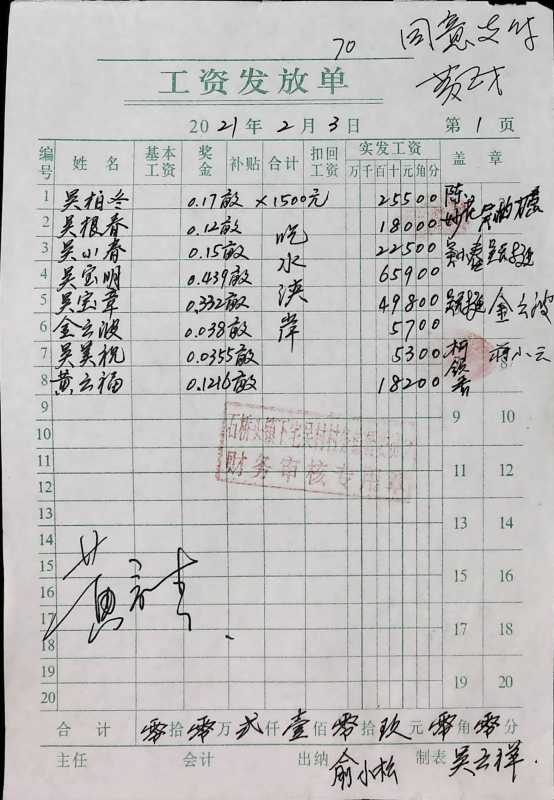 70 同意支付
工资发放单
2021年2月3日 第1页
编号 姓名 基本工资 奖金 补贴 合计 扣回工资 实发工资 盖章
万千百十元角分
1 吴柏冬 0.17亩 ×1500元 25500
2 吴根春 0.12亩 18000
3 吴小春 0.15亩 吃 22500
4 吴宝明 0.439亩 水 65900
5 吴宝章 0.332亩 浃 49800 金云波
6 金云波 0.038亩 岸 5700
7 吴美祝 0.0355亩 5300 蒋小云
8 黄云福 0.1216亩 18200 8
9 9 10
10
11 11 12
12
13 13 14
14
15 15 16
16
17 17 18
18
19 19 20
20
财务审核专用章
合计 零拾零万贰仟壹佰零拾玖元零角零分
主任 会计 出纳 俞小松 制表 吴云祥